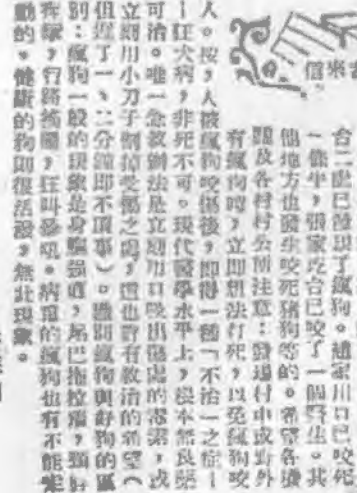 來信
台二處已發現了瘋狗。趙家川口已咬死
一條牛，張家圪台已咬了一個野生。其
他地方也發生咬死猪狗等的。希望各機
關及各村村公所注意：發現村中或野外
有瘋狗時，立即想法打死，以免瘋狗咬
人。按，人被瘋狗咬傷後，即得一種「不治」之症——
——狂犬病，非死不可。現代醫學水平上，根本無良藥
可治。唯一急救辦法是立刻用口吸出傷處的毒素，或
立刻用小刀子割掉受傷之處，這也許有救治的希望（
但遲了一、二分鐘即不頂事）。識別瘋狗與好狗的區
別：瘋狗一般的現象是身軀强直，尾巴拖拉着，頸
，行路搖擺，狂叫暴吼。病重的瘋狗也有不能
動的。健康的狗則很活潑，無此現象。